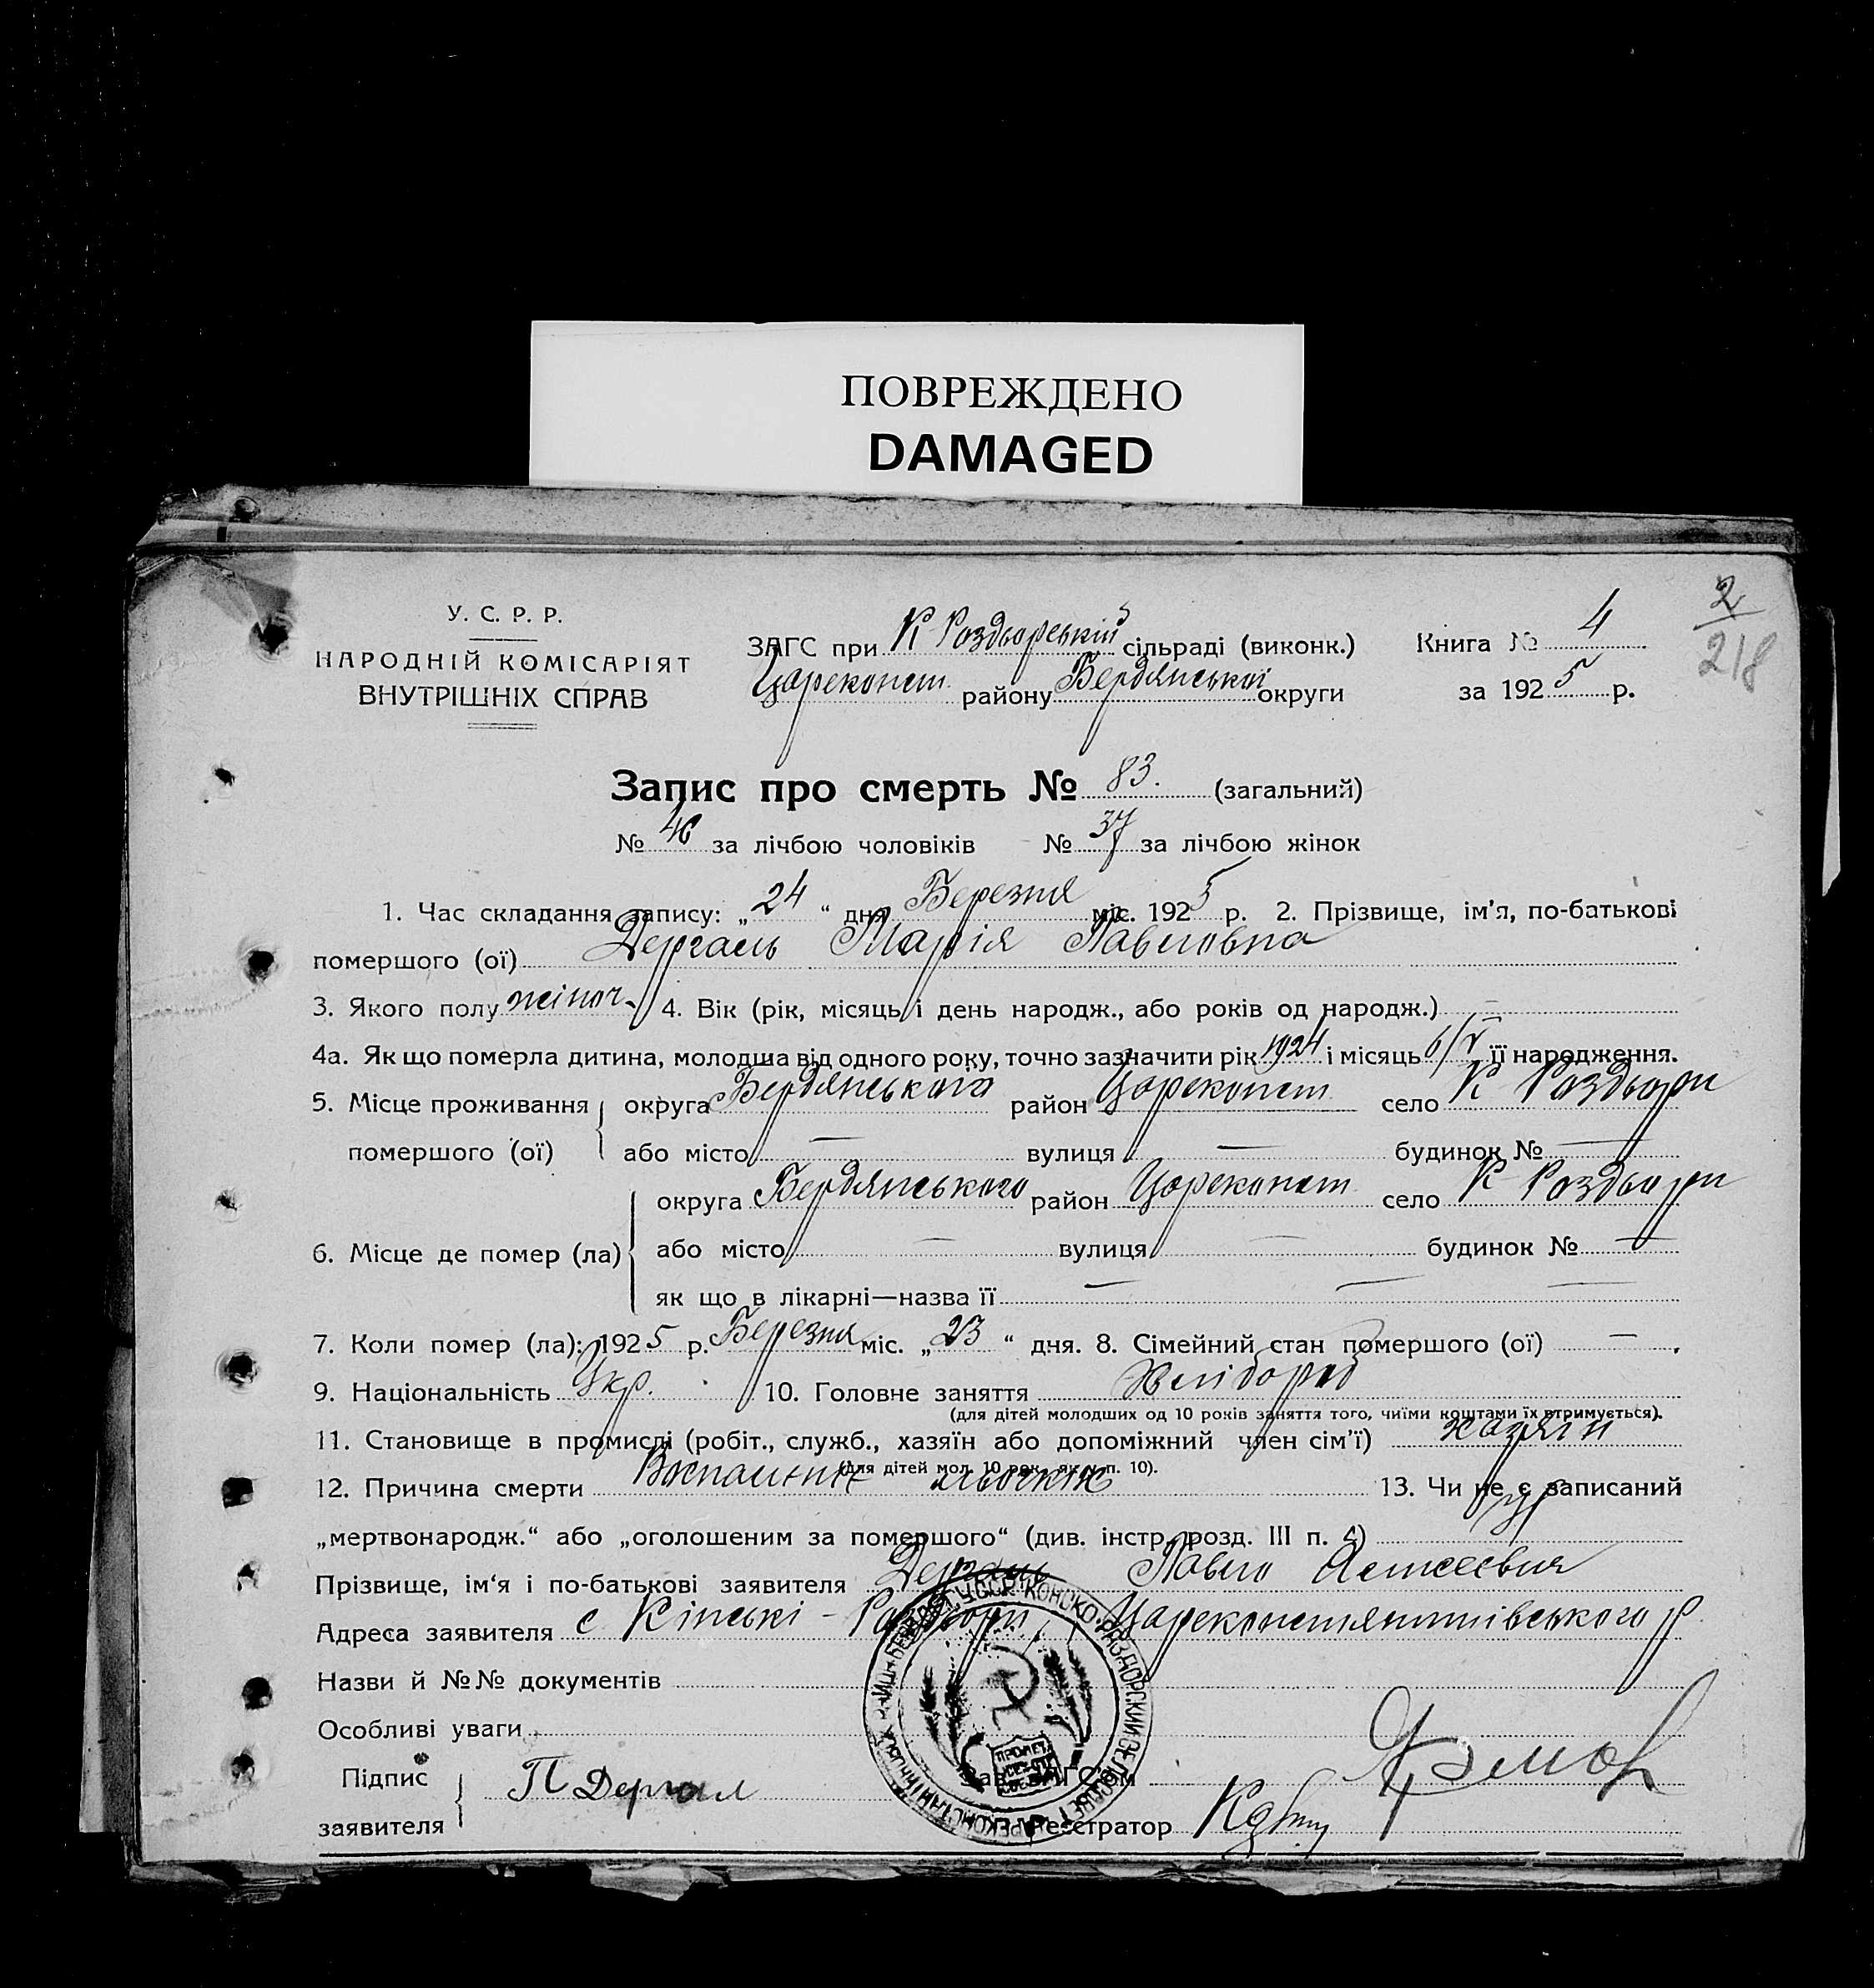 ПОВРЕЖДЕНО
DAMAGED
2
218
У. С. Р. Р.
НАРОДНІЙ КОМІСАРІЯТ
ВНУТРІШНІХ СПРАВ
ЗАГС при К Роздьорській сільраді (виконк.) Книга № 4
Цареконст. району Бердянської округи за 1925 р.
Запис про смерть № 83. (загальний)
№ 46 за лічбою чоловіків № 37 за лічбою жінок
1. Час складання запису: „24“ дня Березня міс. 1925 р. 2. Прізвище, ім'я, по-батькові
помершого (ої) Дергаль Марія Павловна
3. Якого полу жіноч. 4. Вік (рік, місяць і день народж., або років од народж.) —
4а. Як що померла дитина, молодша від одного року, точно зазначити рік 1924 і місяць 6/V її народження.
5. Місце проживання округа Бердянського район Цареконст. село К Роздьори
помершого (ої) або місто — вулиця — будинок № —
округа Бердянського район Цареконст. село К Роздьори
6. Місце де помер (ла) або місто — вулиця — будинок № —
як що в лікарні—назва її — — —
7. Коли помер (ла): 1925 р. Березня міс. „23“ дня. 8. Сімейний стан помершого (ої) —.
9. Національність Укр. 10. Головне заняття Хлібороб
(для дітей молодших од 10 років заняття того, чиїми коштами їх втримується).
11. Становище в промислі (робіт., служб., хазяїн або допоміжний член сім'ї) хазяін
(для дітей мол. 10 рок., як у п. 10).
12. Причина смерти 13. Чи не є записаний
„мертвонародж.“ або „оголошеним за помершого“ (див. інстр. розд. III п. 4)
Прізвище, ім'я і по-батькові заявителя Дергаль Павло
Адреса заявителя с Кінські-Роздьори, Цареконстянтинівського р.
Назви й №№ документів
Особливі уваги
Підпис
заявителя П Дергал
Зав. ЗАГС'ом
Реєстратор